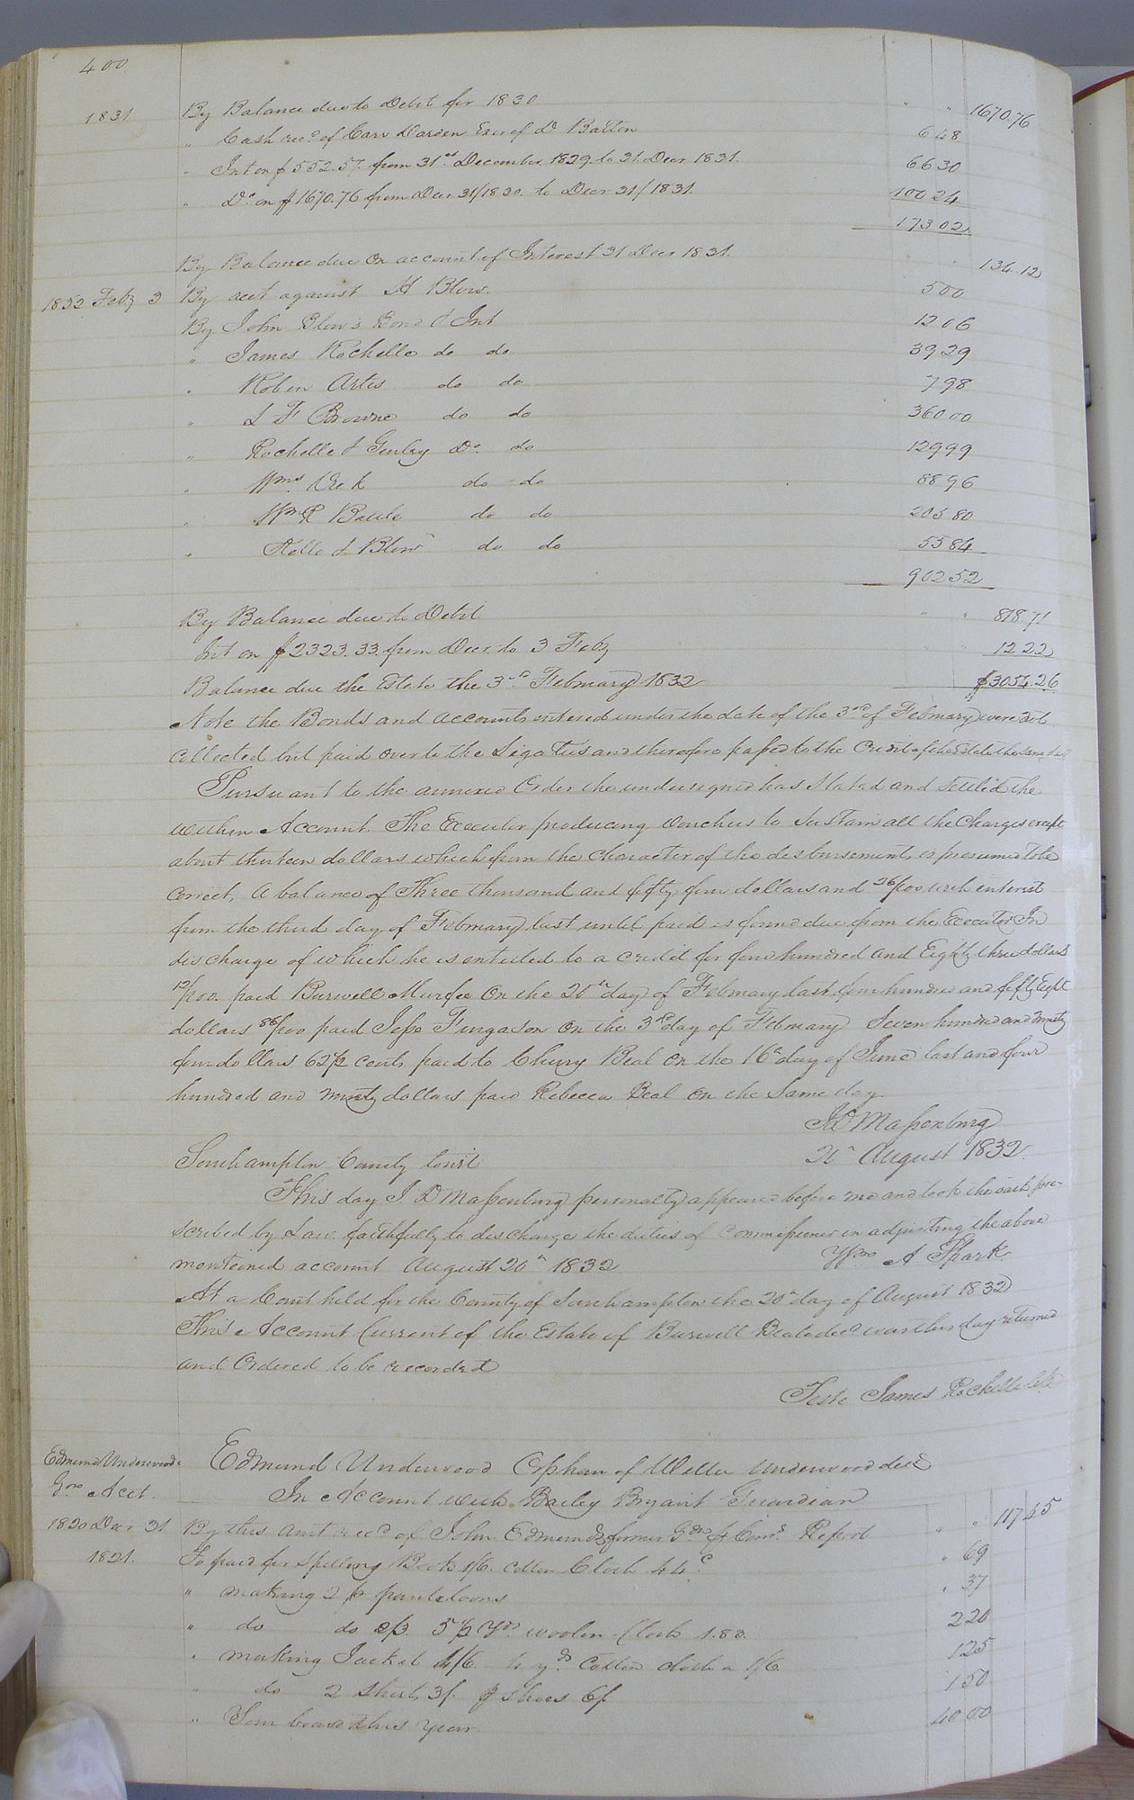 400
1831 By Balance due to Debit for 1830 " " 1670.76
" Cash recd of Carr Darden Exor of D Batten 6 48
" Int on $552.57 from 31st December 1829 to 31 Decr 1831. 66 30
" Do on $1670.76 from Decr 31/1830. to Decr 31/1831. 100 24
173 02
By Balance due on account of Interest 31 Decr 1831. 134.12
1832 Feby 3 By acct against H Blow. 5 00
By John Blow's Bond & Int 12 06
" James Rochelle do do 39 29
" Robin Artis do do 7 98
" S F Browne do do 360 00
" Rochelle & Gurley Do do 129 99
" Wms Vick do do 88 96
" Wm R Battle do do 203 80
" & Blow do do 55 84
902 52
By Balance due to Debit " " 818.71
Int on $2323.33 from Decr to 3 Feby 12 22
Balance due the Estate the 3rd February 1832 $3054.26
Note the Bonds and accounts entered under the date of the 3rd of February were not
collected but paid over to the Legatees and therefore passed to the Credit of the Estate the same
Pursuant to the annexed Order the undersigned has Stated and Settled the
within Account. The Executor producing vouchers to Sustain all the Charges except
about thirteen dollars which from the character of the disbursements is presumed to be
correct, A balance of Three thousand and fifty four dollars and 26/100 with interest
from the third day of February last until paid is found due from the Executor In
discharge of which he is entitled to a credit for four hundred and Eighty three dollars
12/100 paid Burwell Murfee On the 20th day of February last four hundred and fifty Eight
dollars 86/100 paid Jesse Furgason On the 3rd day of February Seven hundred and ninety
four dollars 62 1/2 cents paid to Cherry Beal On the 16th day of June last and four
hundred and ninety dollars paid Rebecca Beal on the Same day
J D Massenburg
20th August 1832.
Southampton County Court
This day J D Massenburg personally appeared before me and took the oath pre-
scribed by Law faithfully to discharge the duties of Commissioner in adjusting the above
mentioned account August 20th 1832 Wm A Spark
At a Court held for the County of Southampton the 20th day of August 1832
This Account Current of the Estate of Burwell Beale decd was this day returned
and Ordered to be recorded
Teste James Rochelle Clk
Edmund Underwoods Edmund Underwood Orphan of Willie Underwood decd
Gdn Acct. In Account with Bailey Bryant Guardian
1830 Decr 31 By this amt recd of John Edmunds former Gdn pr Coms. Report " " 117 45
1831. To paid for Spelling Book 1/6. Cotton Cloth 44c " 69
" making 2 pr pantaloons " 37
" do do 2/3. 5 1/2 Yds woolen Cloth 1.83 2 20
" making Jacket 4/6. yds Cotton cloth a 1/6 1 25
" do 2 Shirts 3/. pr Shoes 6/ 1 50
" Tom board this year 40 00